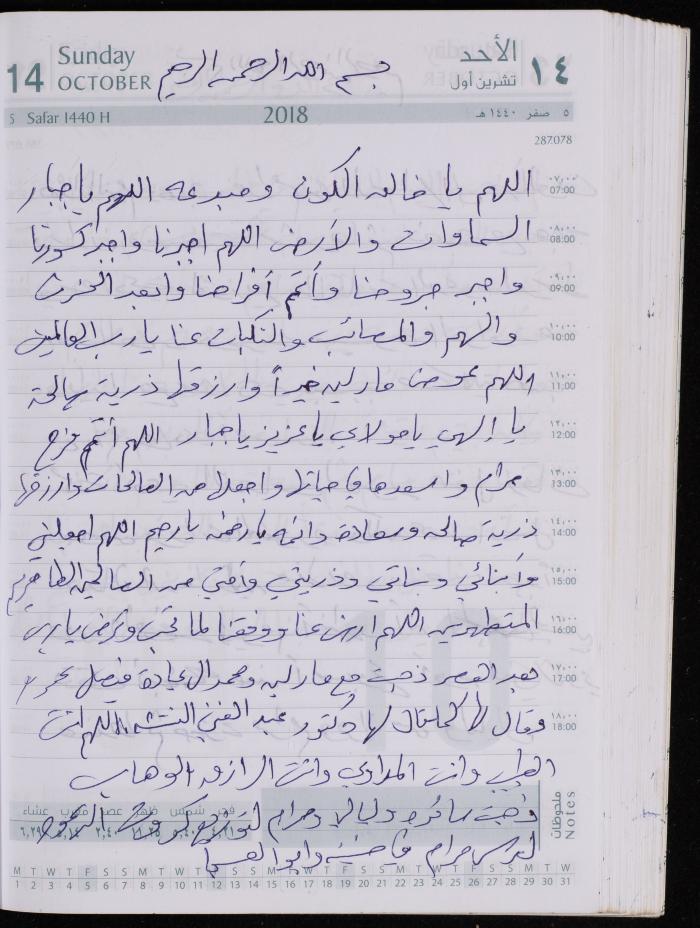 14 Sunday OCTOBER
بسم الله الرحمن الرحيم
الأحد ١٤
تشرين أول
5 Safar 1440 H 2018 ٥ صفر ١٤٤٠ هـ
287.078
اللهم يا خالق الكون ومبدعه اللهم يا جبار
٠٧,٠٠ 07:00
السماوات والأرض اللهم اجبرنا واجبر كسورنا
٠٨,٠٠ 08:00
واجبر جروحنا وأتمم أفراحنا وابعد الحزن
٠٩,٠٠ 09:00
والهم والمصائب والنكبات عنا يا رب العالمين
١٠,٠٠ 10:00
اللهم عوض مارلين خيراً وارزقها ذرية صالحة
١١,٠٠ 11:00
يا إلهي يا مولاي يا عزيز يا جبار اللهم أتمم فرح
١٢,٠٠ 12:00
مرام واسعدها في حياتها واجعلها من الصالحات وارزقها
١٣,٠٠ 13:00
ذرية صالحه وسعادة دائمه يا رحمن يا رحيم اللهم اجعلني
١٤,٠٠ 14:00
وأبنائي وبناتي وذريتي من الصالحين الطاهرين
١٥,٠٠ 15:00
المتطهرين اللهم ارض عنا ووفقنا لما تحب وترضى يا رب
١٦,٠٠ 16:00
بعد العصر ذهبت مع مارلين ومحمد ال عيادة فيصل
١٧,٠٠ 17:00
فقال لها كما قال لها دكتور عبد الغني اللهم انت
١٨,٠٠ 18:00
الطبيب وانت المداوي وانت الرازق الوهاب
ذهبت ومرام
فجر شمس ظهر عصر مغرب عشاء
لعرس مرام في
ملحوظات Notes
M T W T F S S M T W T F S S M T W T F S S M T W T F S S M T W
1 2 3 4 5 6 7 8 9 10 11 12 13 14 15 16 17 18 19 20 21 22 23 24 25 26 27 28 29 30 31